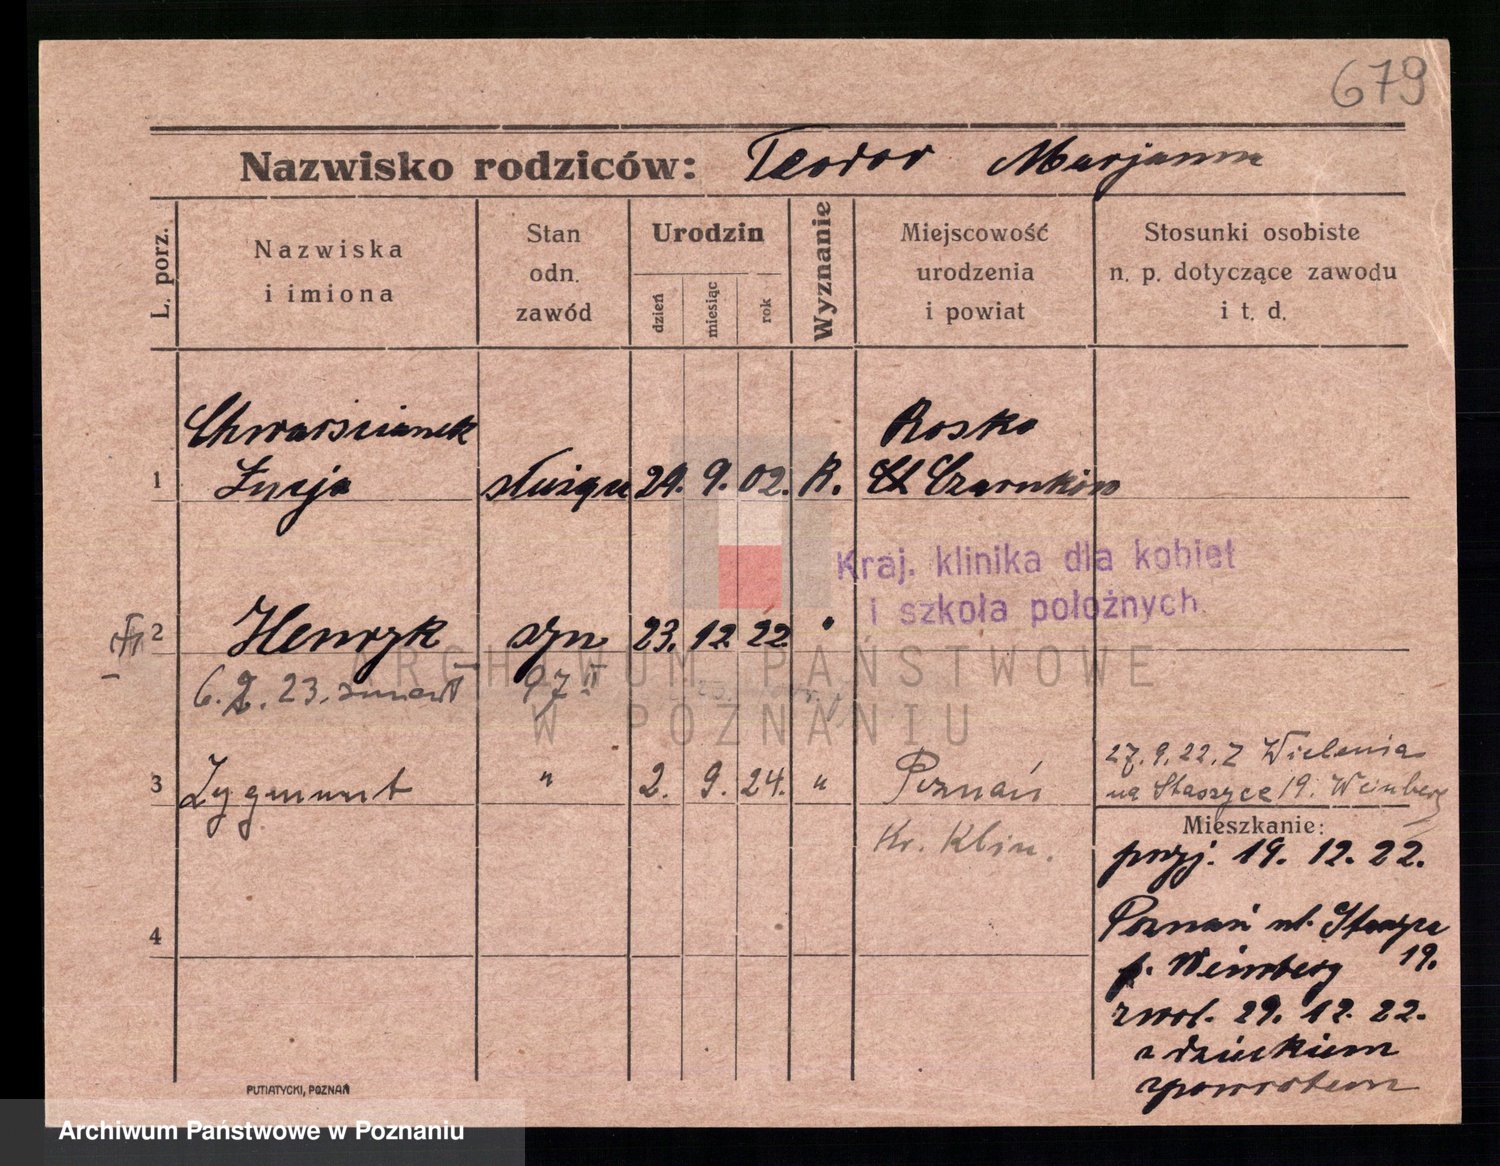 679
Nazwisko rodziców: Teodor Marjanna
L. porz.
Nazwiska
i imiona
Stan
odn.
zawód
Urodzin
dzień
miesiąc
rok
Wyznanie
Miejscowość
urodzenia
i powiat
Stosunki osobiste
n. p. dotyczące zawodu
i t. d.
Chwarścianek
Rosko
1 Łucja służąca 29. 9. 02. R. Czarnków
Kraj. klinika dla kobiet
i szkoła położnych.
2 Henryk syn 23. 12. 22. "
6. 2. 23. zmarł 97 II
ARCHIWUM PAŃSTWOWE
W POZNANIU
27. 9. 22. z Wielenia
3 Zygmunt " 2. 9. 24. " Poznań
na Staszyca 19. Weinberg
Mieszkanie:
Kr. Klin.
przyj. 19. 12. 22.
Poznań ul. Staszyca
4
p. Weinberg 19.
zwol. 29. 12. 22.
z dzieckiem
zpowrotem
PUTIATYCKI, POZNAŃ
Archiwum Państwowe w Poznaniu